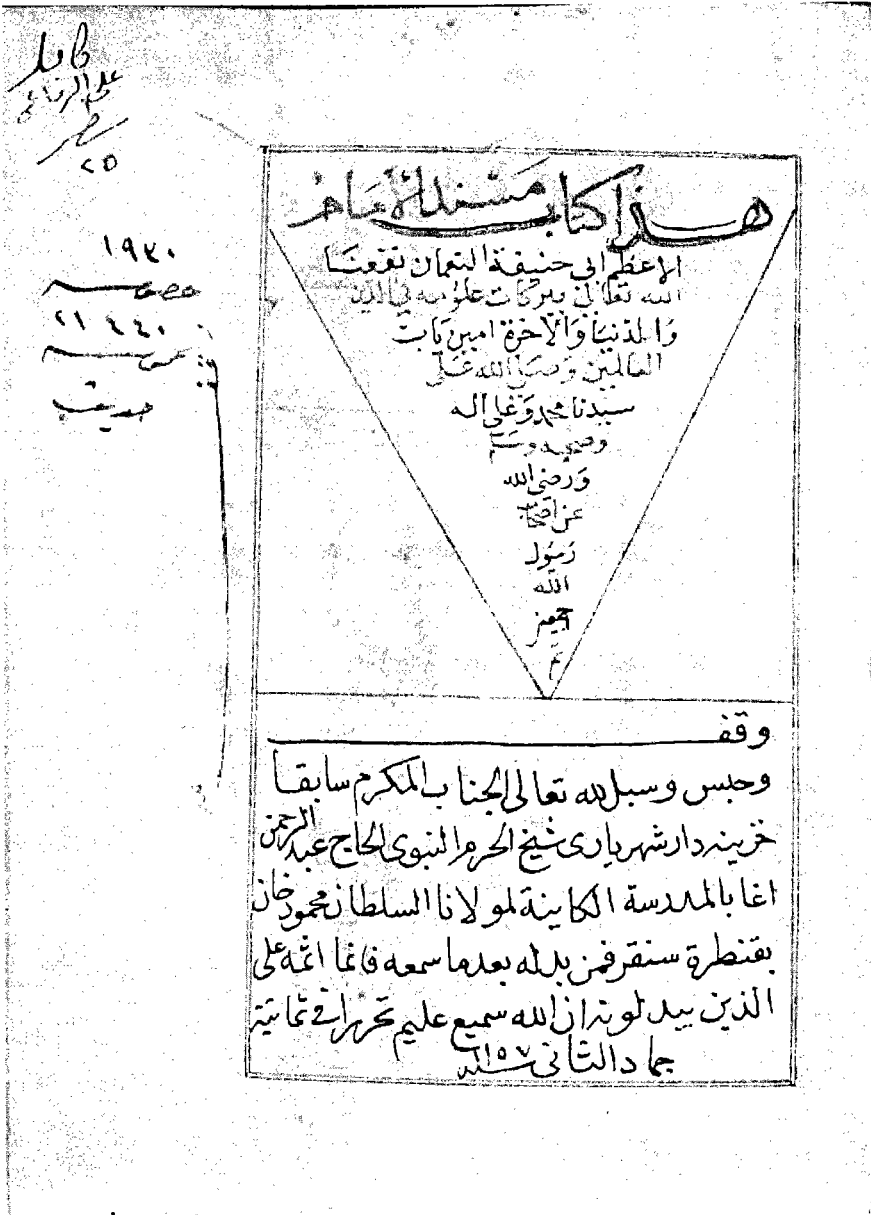 هذا كتاب مسند الامام
الاعظم ابي حنيفة النعمان نفعنا
الله تعالى ببركات علومه في الدين
والدنيا والآخرة امين يارب
العالمين وصلى الله على
سيدنا محمد وعلى اله
وصحبه وسلم
ورضى الله
عن اصحاب
رسول
الله
اجمعين
م
وقف
وحبس وسبل لله تعالى الجناب المكرم سابقا
خزينه دار شهريارى شيخ الحرم النبوى الحاج عبد الرحمن
اغا بالمدرسة الكاينة لمولانا السلطان محمود خان
بقنطرة سنقر فمن بدله بعد ما سمعه فانما اثمه على
الذين يبدلونه ان الله سميع عليم تحريرا فى ثمانية
جماد الثانى سنة ١١٥٧
على الرفاعي
مصر
٢٥
١٩٣٠
خصوصيه
٢١٤٤٠
عموميه
حديث